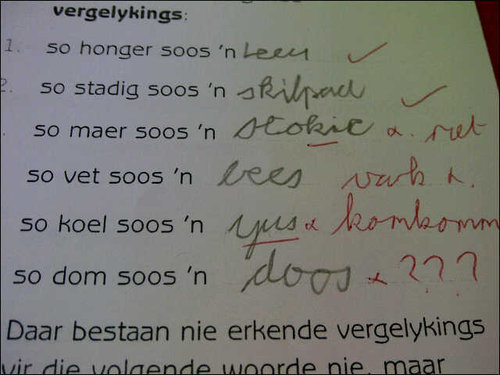 vergelykings:
1. so honger soos 'n Leeu
2. so stadig soos 'n skilpad
so maer soos 'n stokie x. riet
so vet soos 'n bees vark x.
so koel soos 'n yus x komkomm
so dom soos 'n doos x ???
Daar bestaan nie erkende vergelykings
vir die volgende woorde nie, maar